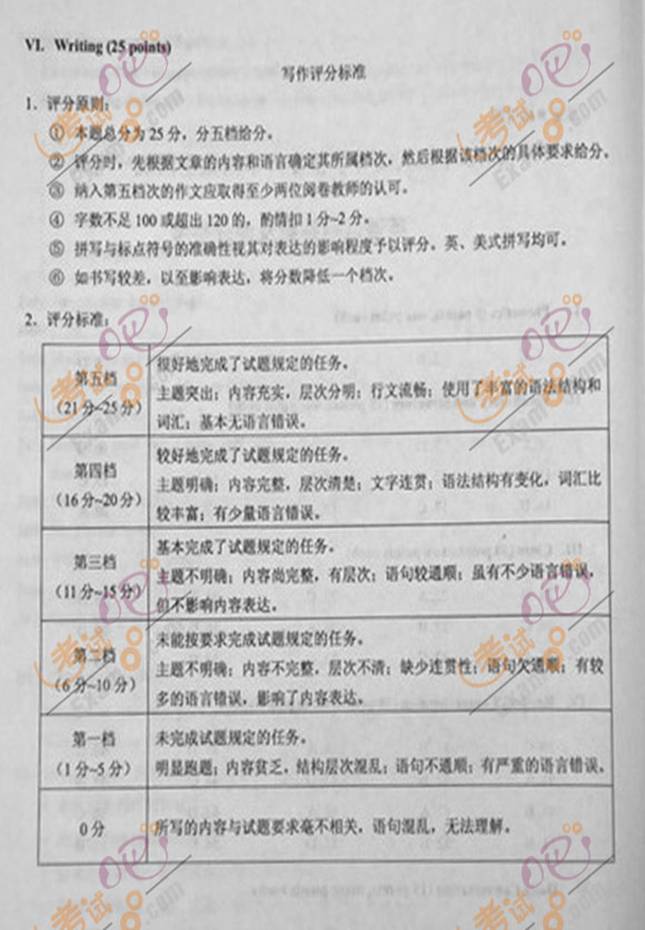 VI. Writing (25 points)
写作评分标准
1. 评分原则:
① 本题总分为25分，分五档给分。
② 评分时，先根据文章的内容和语言确定其所属档次，然后根据该档次的具体要求给分。
③ 纳入第五档次的作文应取得至少两位阅卷教师的认可。
④ 字数不足100或超出120的，酌情扣1分~2分。
⑤ 拼写与标点符号的准确性视其对表达的影响程度予以评分。英、美式拼写均可。
⑥ 如书写较差，以至影响表达，将分数降低一个档次。
2. 评分标准:
第五档
(21分~25分)
很好地完成了试题规定的任务。
主题突出；内容充实，层次分明；行文流畅；使用了丰富的语法结构和
词汇；基本无语言错误。
第四档
(16分~20分)
较好地完成了试题规定的任务。
主题明确；内容完整，层次清楚；文字连贯；语法结构有变化，词汇比
较丰富；有少量语言错误。
第三档
(11分~15分)
基本完成了试题规定的任务。
主题不明确；内容尚完整，有层次；语句较通顺；虽有不少语言错误，
但不影响内容表达。
第二档
(6分~10分)
未能按要求完成试题规定的任务。
主题不明确；内容不完整，层次不清；缺少连贯性；语句欠通顺；有较
多的语言错误，影响了内容表达。
第一档
(1分~5分)
未完成试题规定的任务。
明显跑题；内容贫乏，结构层次混乱；语句不通顺；有严重的语言错误。
0分
所写的内容与试题要求毫不相关，语句混乱，无法理解。
考试吧
Exam8.com